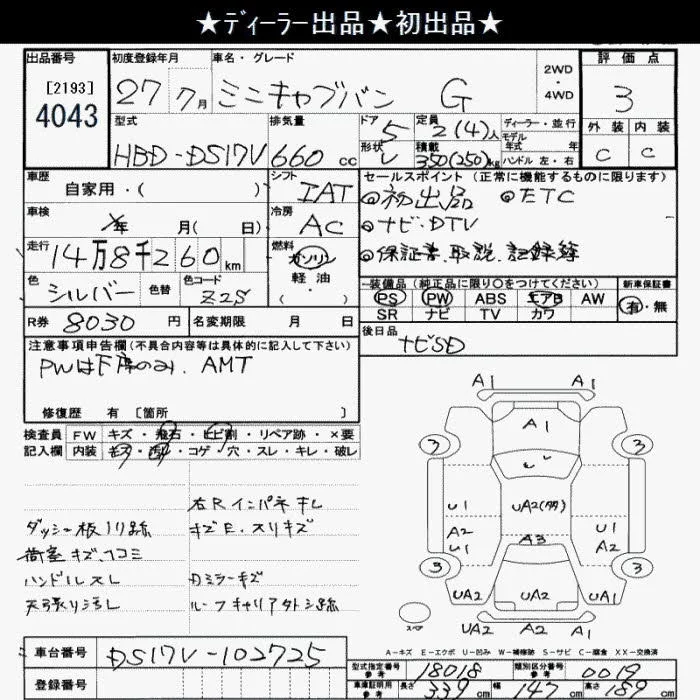 ★ディーラー出品★初出品★
出品番号
[2193]
4043
初度登録年月
27年 7月
車名・グレード
ミニキャブバン G
2WD
・
4WD
評価点
3
外装 内装
C C
型式
HBD-DS17V
排気量
660 cc
ドア
5
形状
V
定員
2(4)人
積載
350(250)kg
ディーラー・並行
モデル
年式 年
ハンドル 左・右
車歴
自家用・( )
シフト
IAT
車検
年 月(日)
冷房
AC
走行
14万8千260km
燃料
ガソリン
軽油
・
( )
色
シルバー
色替
色コード
Z2S
R券 8030円
名変期限 月 日
セールスポイント (正常に機能するものに限ります)
◎初出品 ◎ETC
◎ナビ・DTV
◎保証書、取説、記録簿
装備品(純正品に限り○をつけてください)
PS PW ABS エアB AW
SR ナビ TV カワ
新車保証書
有・無
後日品
ナビSD
注意事項申告欄(不具合内容等は具体的に記入して下さい)
PWは下席のみ、AMT
修復歴 有 〔箇所 〕
検査員
記入欄
FW キズ・飛石・ヒビ割・リペア跡・×要
内装 キズ・汚れ・コゲ・穴・スレ・キレ・破レ
右Rインパネキレ
ダッシュ板ノリ跡
キズE・スリキズ
荷室キズ、ヘコミ
ハンドルスレ
Dミラーキズ
天張り汚レ
ルーフキャリアトシ跡
A1 A1
A1
3 3
U1
UA2(múltiple)
U1
A2
U1
A3
A2
3 3
UA2 UA2 UA1
スペア
UA2 A2 A2
A-キズ E-エクボ U-凹み W-補修跡 S-サビ C-腐食 XX-交換済
車台番号 DS17V-102725
登録番号
型式指定番号
参考
18018
類別区分番号
参考
0019
車庫証明用
参考
長さ 339cm 幅 147cm 高さ 189cm